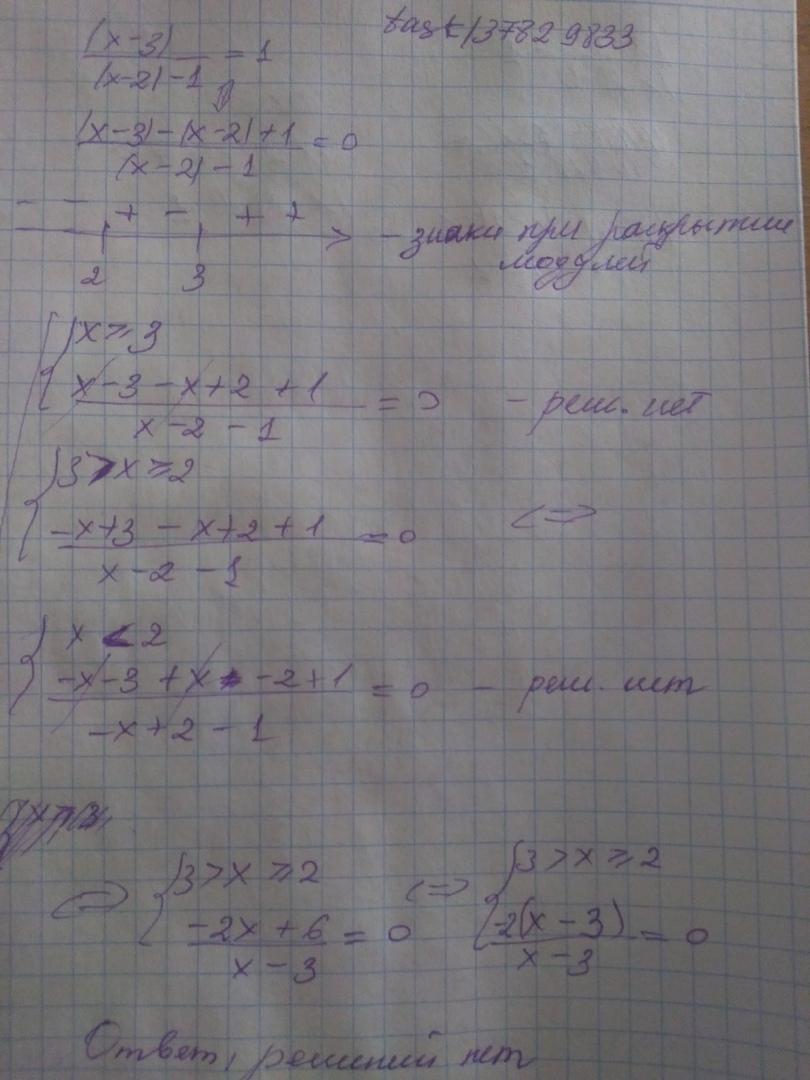 task/37829833
|x-3| / |x-2|-1 = 1
⇕
|x-3|-|x-2|+1 / |x-2|-1 = 0
- - + - + +
2 3 > - знаки при раскрытии модулей
{ x ≥ 3
x-3-x+2+1 / x-2-1 = 0 - реш. нет
{ 3 > x ≥ 2
-x+3-x+2+1 / x-2-1 = 0 <=>
{ x < 2
-x-3+x-2+1 / -x+2-1 = 0 - реш. нет
<=> { 3 > x ≥ 2 <=> { 3 > x ≥ 2
-2x+6 / x-3 = 0 -2(x-3) / x-3 = 0
Ответ, решений нет